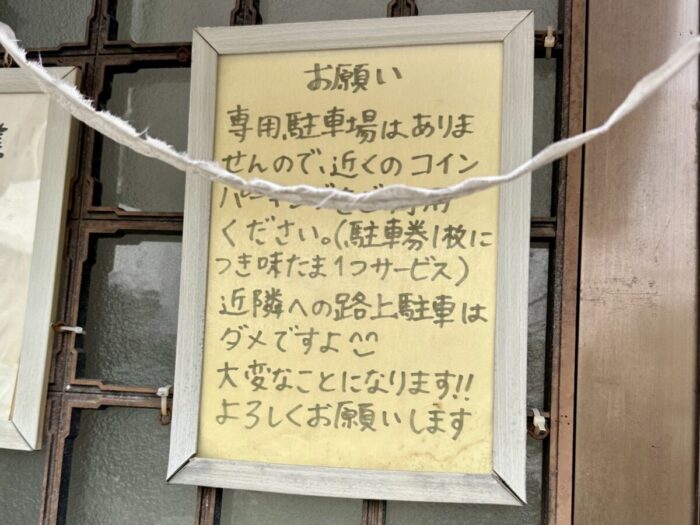 お願い
専用駐車場はありま
せんので、近くのコイン
パーキングをご利用
ください。(駐車券1枚に
つき味たま1つサービス)
近隣への路上駐車は
ダメですよ^^
大変なことになります!!
よろしくお願いします
業